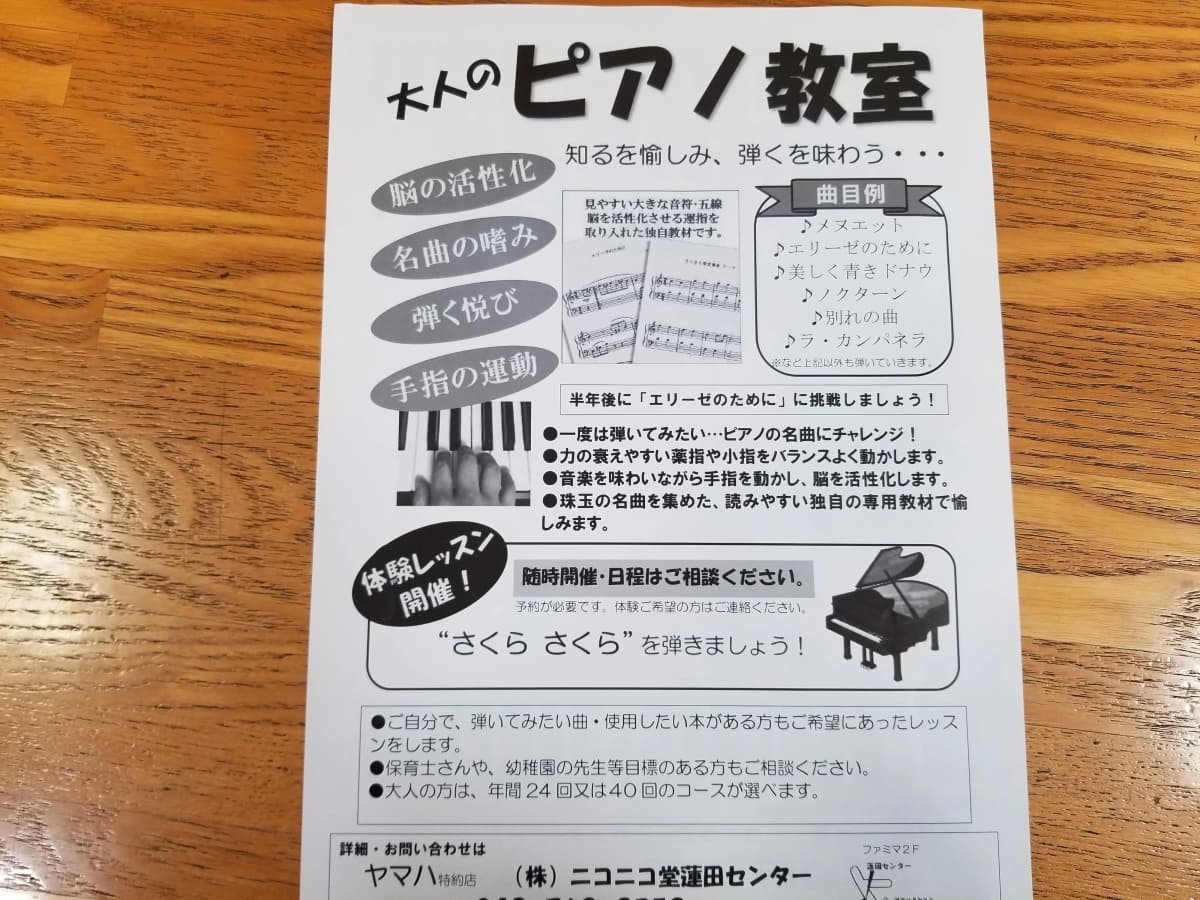 大人のピアノ教室
知るを愉しみ、弾くを味わう・・・
脳の活性化
名曲の嗜み
弾く悦び
手指の運動
見やすい大きな音符・五線
脳を活性化させる運指を
取り入れた独自教材です。
エリーゼのために
曲目例
♪メヌエット
♪エリーゼのために
♪美しく青きドナウ
♪ノクターン
♪別れの曲
♪ラ・カンパネラ
※など上記以外も弾いていきます。
半年後に「エリーゼのために」に挑戦しましょう！
●一度は弾いてみたい…ピアノの名曲にチャレンジ！
●力の衰えやすい薬指や小指をバランスよく動かします。
●音楽を味わいながら手指を動かし、脳を活性化します。
●珠玉の名曲を集めた、読みやすい独自の専用教材で愉
しみます。
体験レッスン
開催！
随時開催・日程はご相談ください。
予約が必要です。体験ご希望の方はご連絡ください。
“さくら さくら”を弾きましょう！
●ご自分で、弾いてみたい曲・使用したい本がある方もご希望にあったレッス
ンをします。
●保育士さんや、幼稚園の先生等目標のある方もご相談ください。
●大人の方は、年間24回又は40回のコースが選べます。
詳細・お問い合わせは
ヤマハ特約店 （株）ニコニコ堂蓮田センター
ファミマ2F
蓮田センター